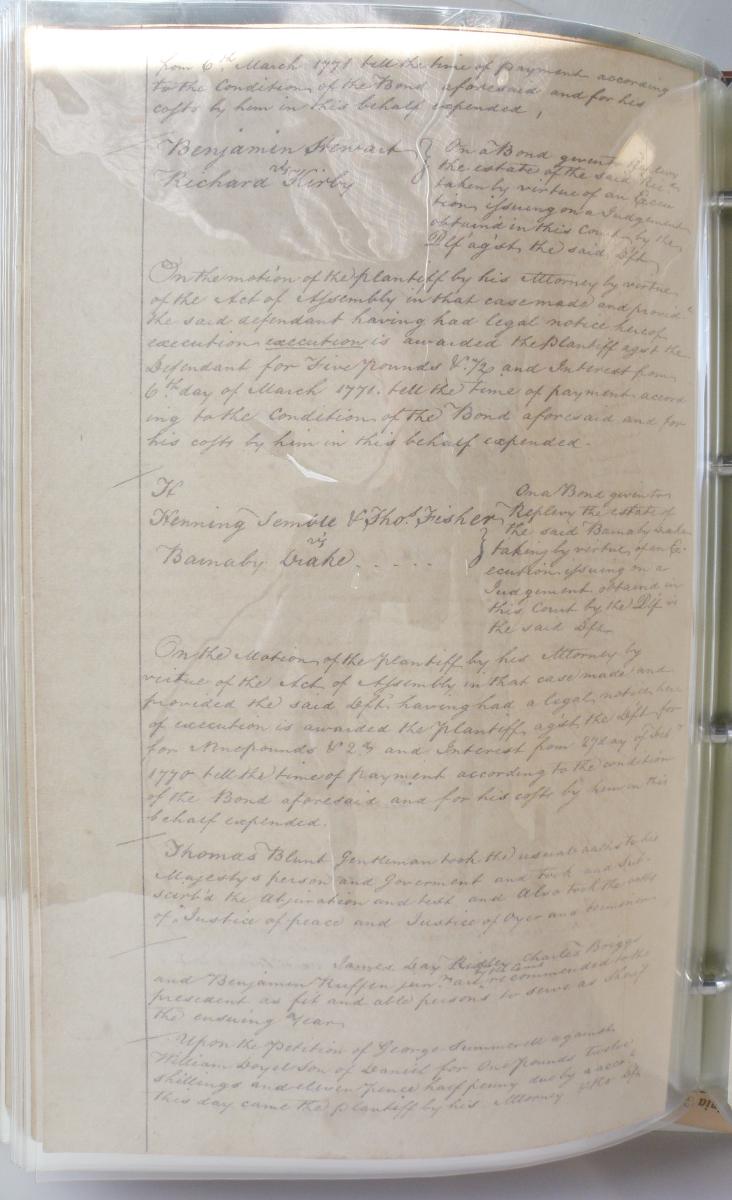 from 6th March 1771 till the time of payment according
to the Condition of the Bond aforesaid and for his
costs by him in this behalf expended,
Benjamin Stewart
vs
Richard Kirby
On a Bond given to Replevy
the estate of the said
taken by virtue of an Execu
tion issuing on a Judgement
obtain'd in this Court by the
Plf agst the said Dft
On the motion of the plantiff by his Attorney by virtue
of the Act of Assembly in that case made and provid
the said defendant having had legal notice hereof
execution execution is awarded the Plantiff agst the
Defendant for Five pounds & and Interest from
6th day of March 1771. till the time of payment accord
ing to the Condition of the Bond aforesaid and for
his costs by him in this behalf expended.
Henning & Thos. Fisher
vs
Barnaby Drake.....
On a Bond given to
Replevy the estate of
the said Barnaby Drake
taking by virtue of an Ex-
ecution issuing on a
Judgement obtaind in
this Court by the Plf
the said Dft
On the Motion of the Plantiff by his Attorney by
virtue of the Act of Assembly in that case made and
provided the said Deft having had a legal notice here
of execution is awarded the Plantiff agst the Deft for
for Nine pounds & and Interest from 27 day of
1770 till the time of payment according to the condition
of the Bond aforesaid and for his costs by him in this
behalf expended.
Thomas Blunt Gentleman took the usual oaths to his
Majestys person and Goverment and took and Sub-
scrib'd the Abjuration and test and Also took the oaths
of Justice of peace and Justice of Oyer and terminer
James Day Ridley Charles Briggs
and Benjamin Ruffin junr. are recommended to the
president as fit and able persons to serve as Sherif
the ensuing Year
Upon the Petition of George Summerell against
William Boyd son of Daniel for One pounds twelve
shillings and eleven pence half penny due by acco
this day came the plantiff by his Attorney & the Dft